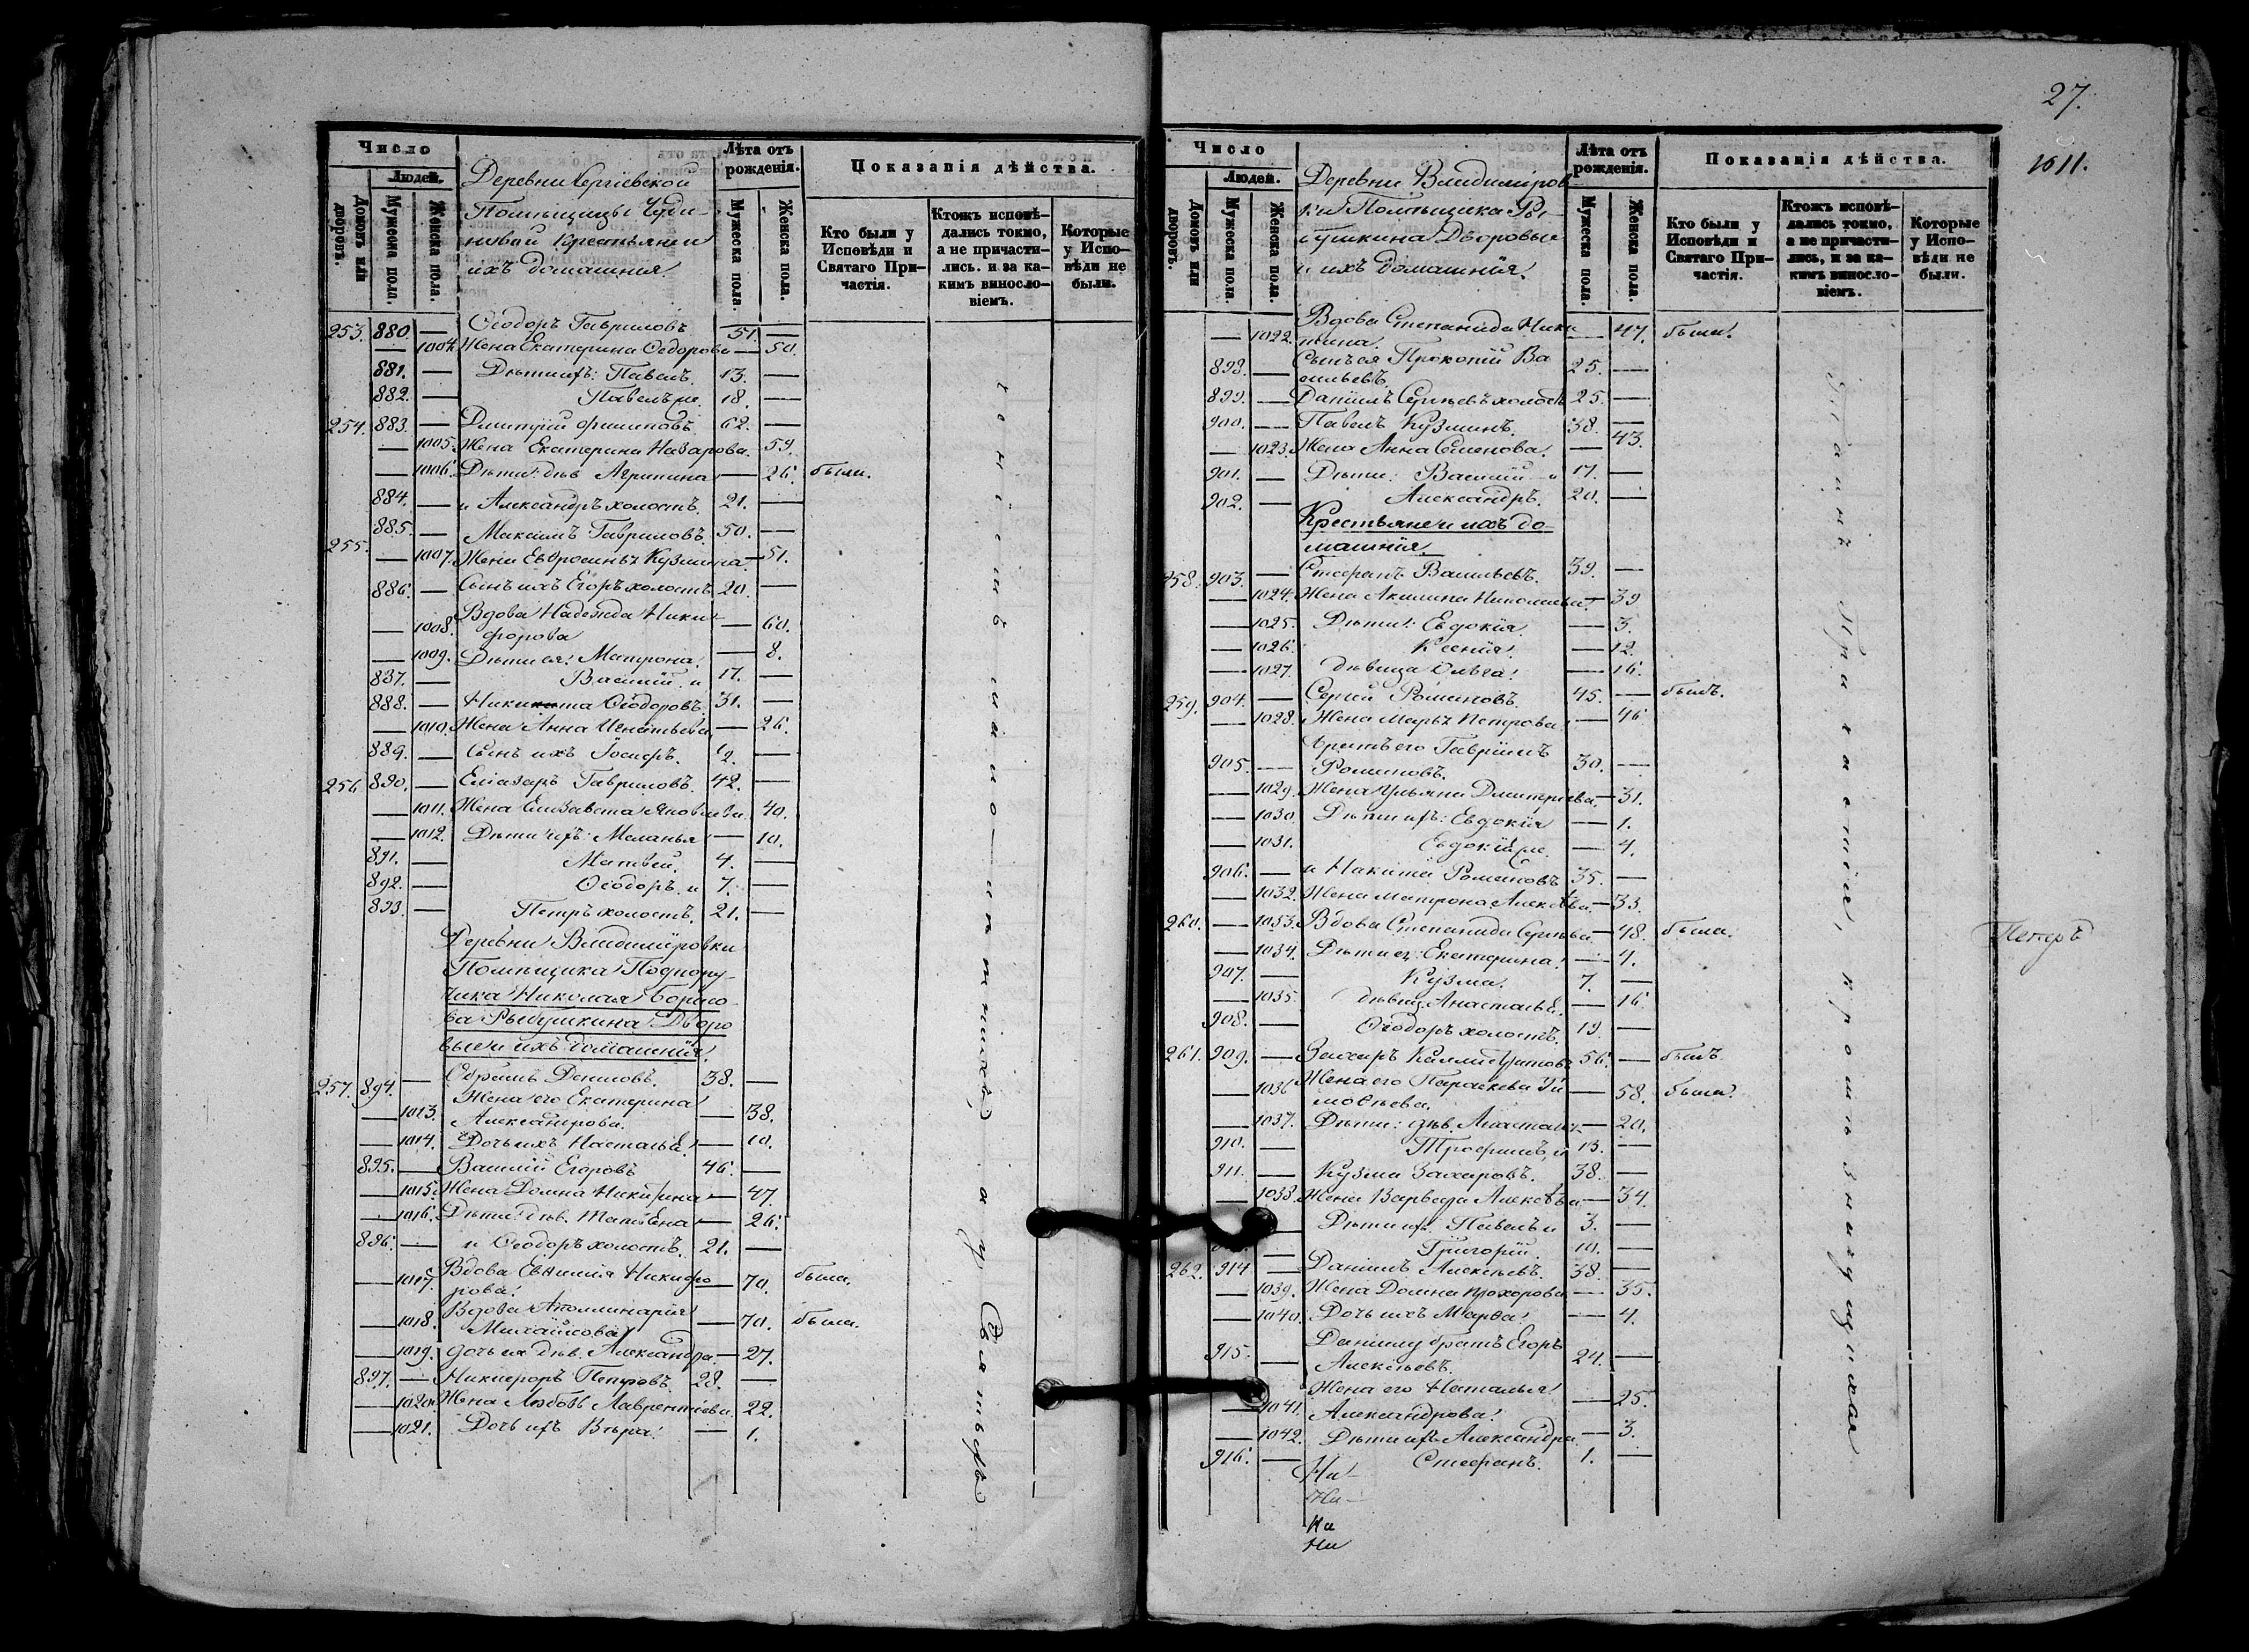 Число
Людей.
Домовъ или дворовъ.
Мужеска пола.
Женска пола.
Деревни Сергіевской
Помѣщицы Чуди-
новой Крестьяне и
ихъ домашнія.
Лѣта отъ рожденія.
Мужеска пола
Женска пола.
Показанія дѣйства.
Кто были у Исповѣди и Святаго Причастія.
Ктожъ исповѣдались токмо, а не причастились. и за какимъ винословіемъ.
Которые у Исповѣди не были.
253. 880. — Ѳеодоръ Гавриловъ 51. —
— 1004. Жена Екатерина Ѳедорова — 50.
881. — Дѣти ихъ: Павелъ. 13. —
882. — Павелъ же. 18. —
254. 883. — Димитрій Филиповъ. 62. —
— 1005. Жена Екатерина Назарова. 59.
— 1006. Дѣти: дѣв. Агрипина — 26. были.
884. — и Александръ холостъ. 21. —
255. 885. — Максимъ Гавриловъ. 50. —
— 1007. Жена Евфросинья Кузмина — 51.
886. — Сынъ ихъ Егоръ холостъ 20. —
— 1008. Вдова Надежда Ники-
форова — 60.
— 1009. Дѣти ея: Матрона. — 8.
887. — Василій и 17. —
888. — Никита Ѳеодоровъ. 31. —
— 1010. Жена Анна Игнатьева — 26.
889. — Сынъ ихъ Іосифъ. 2. —
256. 890. — Елиазаръ Гавриловъ. 42. —
— 1011. Жена Елизавета Яковлева 40.
— 1012. Дѣти ихъ: Меланья — 10.
891. — Матвей. 4. —
892. — Ѳеодоръ и 7. —
893. — Петръ холостъ. 21. —
Деревни Владимировки
Помѣщика Подпору-
чика Николая Борисо-
ва Рыбушкина Дворо
вые и ихъ домашнія.
257. 894. — Ефремъ Денисовъ. 38. —
Жена его Екатерина
— 1013. Александрова. — 38.
— 1014. Дочь ихъ Наталья. — 10.
895. — Василій Егоровъ 46. —
— 1015. Жена Домна Никитина — 47.
— 1016. Дѣти: дѣв. Татьяна — 26.
896. — и Ѳеодоръ холостъ. 21. —
— 1017. Вдова Евфимія Никифо
рова. — 70. была.
— 1018. Вдова Аполлинарія
Михайлова — 70. была.
— 1019. дочь ея дѣв. Александра. — 27.
897. — Никифоръ Петровъ. 28. —
— 1020. Жена Любовь Лаврентіева. 22.
— 1021. Дочь ихъ Вѣра. — 1.
а у Святыхъ
27.
1011.
Число
Людей.
Домовъ или дворовъ.
Мужеска пола.
Женска пола.
Деревни Владиміров
ки Помѣщика Ры-
бушкина Дворовые
и ихъ домашнія.
Лѣта отъ рожденія.
Мужеска пола.
Женска пола.
Показанія дѣйства.
Кто были у Исповѣди и Святаго Причастія.
Ктожъ исповѣдались токмо, а не причастились, и за какимъ винословіемъ.
Которые у Исповѣди не были.
— 1022. Вдова Степанида Ники
тина. — 47. была.
898. — Сынъ ея Прокопій Ва
сильевъ. 25. —
899. — Даніилъ Сергѣевъ холостъ 25. —
900. — Павелъ Кузминъ. 38. —
— 1023. Жена Анна Семенова. — 43.
901. — Дѣти: Василій и 17. —
902. — Александръ. 20. —
Крестьяне и ихъ до-
машнія.
258. 903. — Стефанъ Васильевъ. 39. —
— 1024. Жена Акилина Николаева. — 39
— 1025. Дѣти: Евдокія. — 3.
— 1026. Ксенія. — 12.
— 1027. дѣвица Ольга. — 16.
259. 904. — Сергій Романовъ. 45. — былъ.
— 1028. Жена Марья Петрова — 46
905. — братъ его Гавріилъ
Романовъ. 30. —
— 1029. Жена Ульяна Дмитріева. — 31.
— 1030 Дѣти ихъ: Евдокія — 1.
— 1031. Евдокія же. — 4.
906. — и Никита Романовъ 35. —
— 1032. Жена Матрона Алексѣева. — 33.
260. — 1033. Вдова Степанида Сергѣева — 48. была.
— 1034. Дѣти ея: Екатерина. — 4.
907. — Кузма. 7. —
— 1035. дѣвиц. Анастасья. — 16.
908. — Ѳеодоръ холостъ. 19. —
261. 909. — Захаръ Каллистратовъ 56. — былъ
— 1036 Жена его Параскева Ти
мофѣева. — 58. была.
— 1037. Дѣти: дѣв. Анастасья — 20.
910. — Трофимъ, и 13. —
911. — Кузма Захаровъ. 38. —
— 1038. Жена Варвара Алексѣева — 34.
— Дѣти ихъ Павелъ и 3. —
— Григорій. 10. —
262. 914 — Даніилъ Алексѣевъ. 38. —
— 1039. Жена Домна Прохорова — 35.
— 1040. Дочь ихъ Марфа. — 4.
915. — Даніилу братъ Егоръ
Алексѣевъ. 24. —
Жена его Наталья
— 1041. Александрова. — 25.
— 1042. Дѣти ихъ Александра — 3.
916. — Стефанъ. 1. —
На
На
На
На
Тайнъ Причастія, кромѣ
Петръ